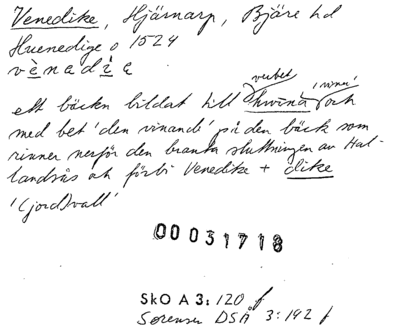 Venedike, Hjärnarp, Bjäre hd
Huenedige o 1524
vènadìe
verbet 'vina'
ett bäcken bildat till hwina och
med bet 'den vinande' på den bäck som
rinner nerför den branta sluttningen av Hal-
landsås och förbi Venedike + dike
'(jord)vall'
00031718
SkO A 3: 120 f
Sørensen DSÅ 3: 192 f